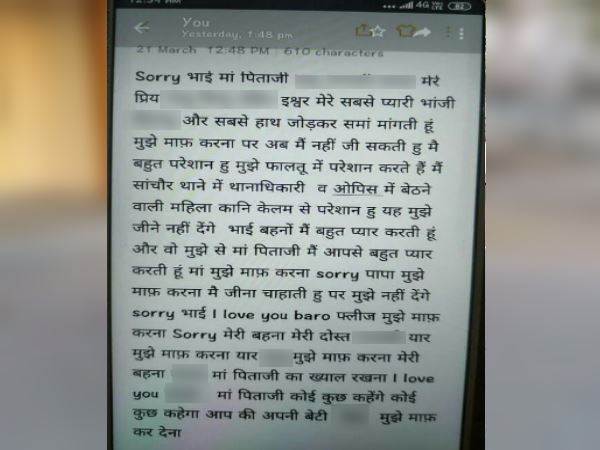 You
Yesterday, 1:48 pm
4G
82
21 March 12:48 PM 610 characters
Sorry भाई मां पिताजी मेरे
प्रिय इश्वर मेरे सबसे प्यारी भांजी
और सबसे हाथ जोड़कर समां मांगती हूं
मुझे माफ़ करना पर अब मैं नहीं जी सकती हु मै
बहुत परेशान हु मुझे फालतू में परेशान करते हैं मैं
सांचौर थाने में थानाधिकारी व ओपिस में बेठने
वाली महिला कानि केलम से परेशान हु यह मुझे
जीने नहीं देंगे भाई बहनों मैं बहुत प्यार करती हूं
और वो मुझे से मां पिताजी मैं आपसे बहुत प्यार
करती हूं मां मुझे माफ़ करना sorry पापा मुझे
माफ़ करना मै जीना चाहाती हु पर मुझे नहीं देंगे
sorry भाई I love you baro फ्लीज मुझे माफ़
करना Sorry मेरी बहना मेरी दोस्त यार
मुझे माफ़ करना यार मुझे माफ़ करना मेरी
बहना मां पिताजी का ख्याल रखना I love
you मां पिताजी कोई कुछ कहेंगे कोई
कुछ कहेगा आप की अपनी बेटी मुझे माफ़
कर देना